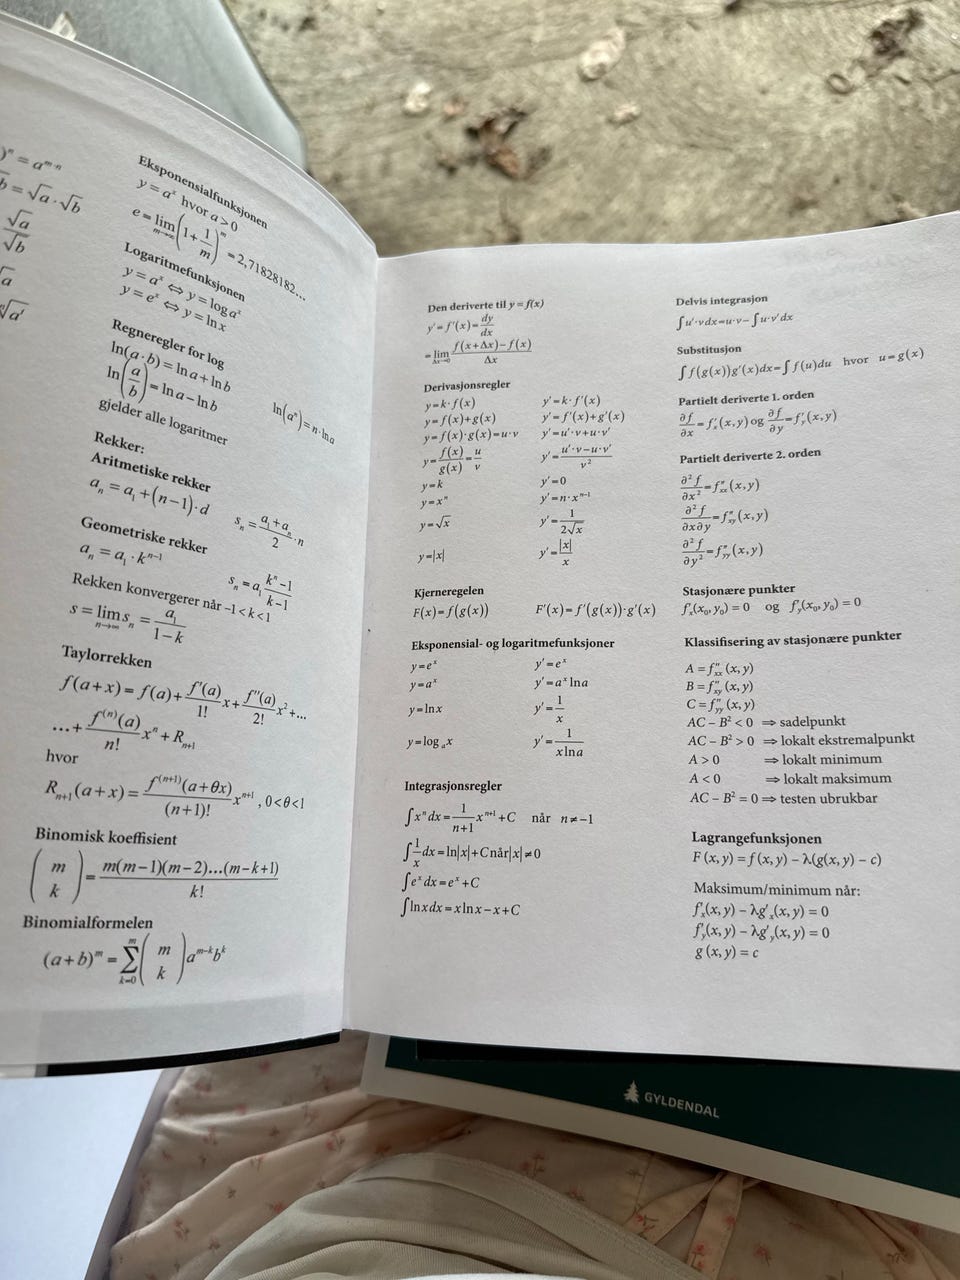 )ⁿ = aᵐ·ⁿ
b = √a · √b
√a
√b
√a
√a'
Eksponensialfunksjonen
y = aˣ hvor a > 0
e = lim m→∞ (1 + 1/m)ᵐ = 2,71828182...
Logaritmefunksjonen
y = aˣ ⇔ y = log aˣ
y = eˣ ⇔ y = ln x
Regneregler for log
ln(a · b) = ln a + ln b
ln(a/b) = ln a − ln b
ln(aⁿ) = n · ln a
gjelder alle logaritmer
Rekker:
Aritmetiske rekker
aₙ = a₁ + (n−1) · d
sₙ = (a₁ + aₙ)/2 · n
Geometriske rekker
aₙ = a₁ · kⁿ⁻¹
sₙ = a₁ (kⁿ − 1)/(k − 1)
Rekken konvergerer når −1 < k < 1
s = lim n→∞ sₙ = a₁/(1 − k)
Taylorrekken
f(a + x) = f(a) + f'(a)/1! x + f''(a)/2! x² + ...
... + f⁽ⁿ⁾(a)/n! xⁿ + Rₙ₊₁
hvor
Rₙ₊₁(a + x) = f⁽ⁿ⁺¹⁾(a + θx)/(n+1)! xⁿ⁺¹ , 0 < θ < 1
Binomisk koeffisient
(m k) = m(m−1)(m−2)...(m−k+1)/k!
Binomialformelen
(a + b)ᵐ = ∑ k=0 m (m k) aᵐ⁻ᵏ bᵏ
Den deriverte til y = f(x)
y' = f'(x) = dy/dx
= lim Δx→0 (f(x + Δx) − f(x))/Δx
Derivasjonsregler
y = k · f(x) y' = k · f'(x)
y = f(x) + g(x) y' = f'(x) + g'(x)
y = f(x) · g(x) = u · v y' = u' · v + u · v'
y = f(x)/g(x) = u/v y' = (u' · v − u · v')/v²
y = k y' = 0
y = xⁿ y' = n · xⁿ⁻¹
y = √x y' = 1/(2√x)
y = |x| y' = |x|/x
Kjerneregelen
F(x) = f(g(x)) F'(x) = f'(g(x)) · g'(x)
Eksponensial- og logaritmefunksjoner
y = eˣ y' = eˣ
y = aˣ y' = aˣ ln a
y = ln x y' = 1/x
y = logₐ x y' = 1/(x ln a)
Integrasjonsregler
∫ xⁿ dx = 1/(n+1) xⁿ⁺¹ + C når n ≠ −1
∫ 1/x dx = ln|x| + C når |x| ≠ 0
∫ eˣ dx = eˣ + C
∫ ln x dx = x ln x − x + C
Delvis integrasjon
∫ u' · v dx = u · v − ∫ u · v' dx
Substitusjon
∫ f(g(x)) g'(x) dx = ∫ f(u) du hvor u = g(x)
Partielt deriverte 1. orden
∂f/∂x = f'ₓ(x, y) og ∂f/∂y = f'y(x, y)
Partielt deriverte 2. orden
∂²f/∂x² = f''xx(x, y)
∂²f/∂x∂y = f''xy(x, y)
∂²f/∂y² = f''yy(x, y)
Stasjonære punkter
f'ₓ(x₀, y₀) = 0 og f'y(x₀, y₀) = 0
Klassifisering av stasjonære punkter
A = f''xx (x, y)
B = f''xy (x, y)
C = f''yy (x, y)
AC − B² < 0 ⇒ sadelpunkt
AC − B² > 0 ⇒ lokalt ekstremalpunkt
A > 0 ⇒ lokalt minimum
A < 0 ⇒ lokalt maksimum
AC − B² = 0 ⇒ testen ubrukbar
Lagrangefunksjonen
F (x, y) = f (x, y) − λ(g(x, y) − c)
Maksimum/minimum når:
f'ₓ(x, y) − λg'ₓ(x, y) = 0
f'y(x, y) − λg'y(x, y) = 0
g (x, y) = c
GYLDENDAL